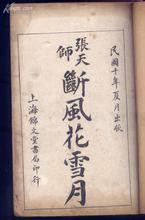 民國十年夏月出版
張天師
斷風花雪月
上海錦文堂書局印行